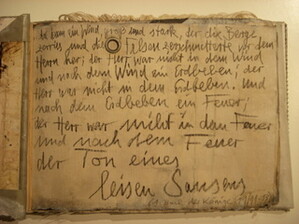 kam ein Wind, groß und stark, der die Berge
zerriss und die Felsen zerschmetterte vor dem
Herrn her; der Herr war nicht in dem Wind
und nach dem Wind ein Erdbeben; der
Herr war nicht in dem Erdbeben. und
nach dem Erdbeben ein Feuer;
der Herr war nicht in dem Feuer
und nach dem Feuer
der Ton eines
leisen Sausens